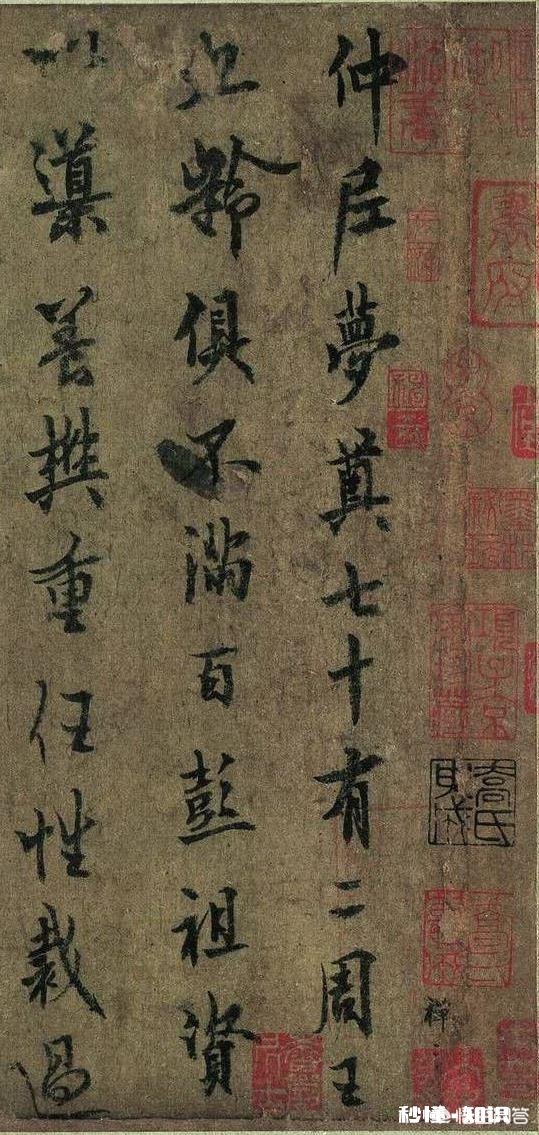 仲尼夢奠七十有二周王
九齡俱不滿百彭祖資
以導養樊重任性裁過
禪
秒懂·知识
答